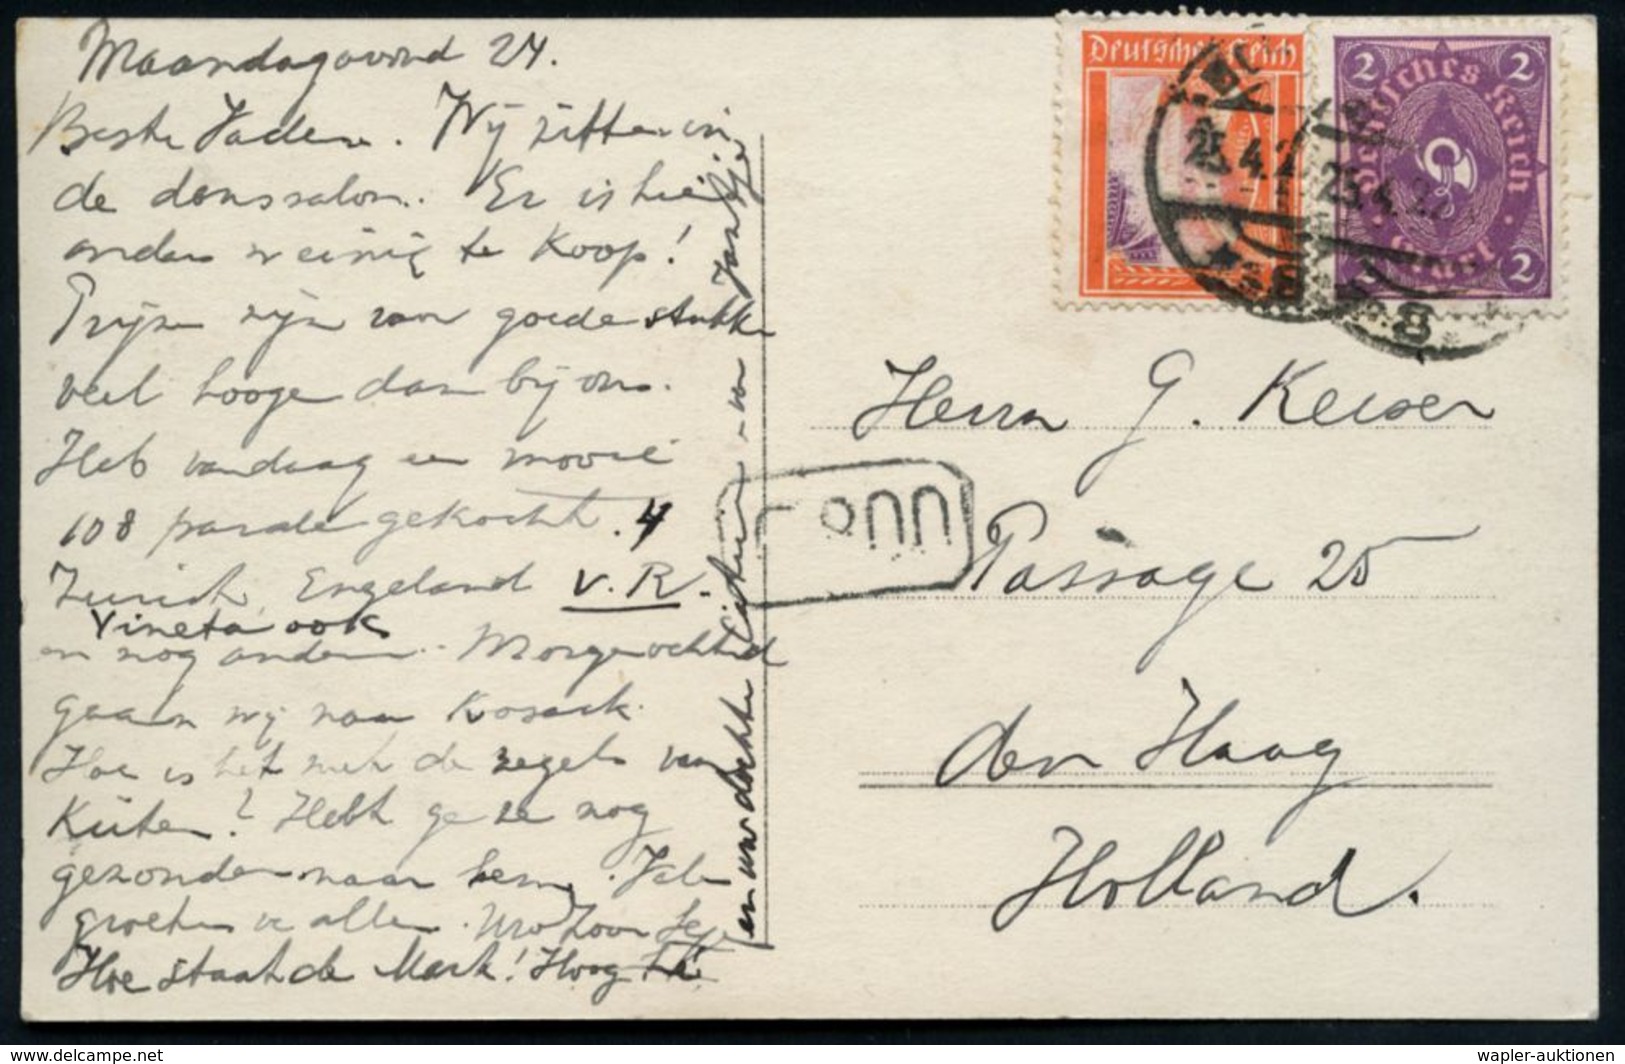 Maandagavond 24.
Beste Vader. Wij zitten in
de denssalon. Er is hier
anders weinig te Koop!
Prijzen zijn voor goede stukken
veel hooger dan bij ons.
Heb vandaag een mooie
108 gekocht. 4
Zurich, Engeland V.R.
Vineta ook
en nog andere. Morgenochtend
gaan wij naar Kosack.
Hoe is het met de zegels van
Kuiten? Hebt ge ze nog
gezonden naar hem.
groeten v allen. Uw Zoon
Hoe staat de Mark! Hoog
en uw dochter
Deutsches Reich
2 2
Deutsches Reich
2
25.4.2
25.4.22
8
Herrn G. Keiser
Passage 25
den Haag
Holland.
wapler-auktionen
delcampe.net